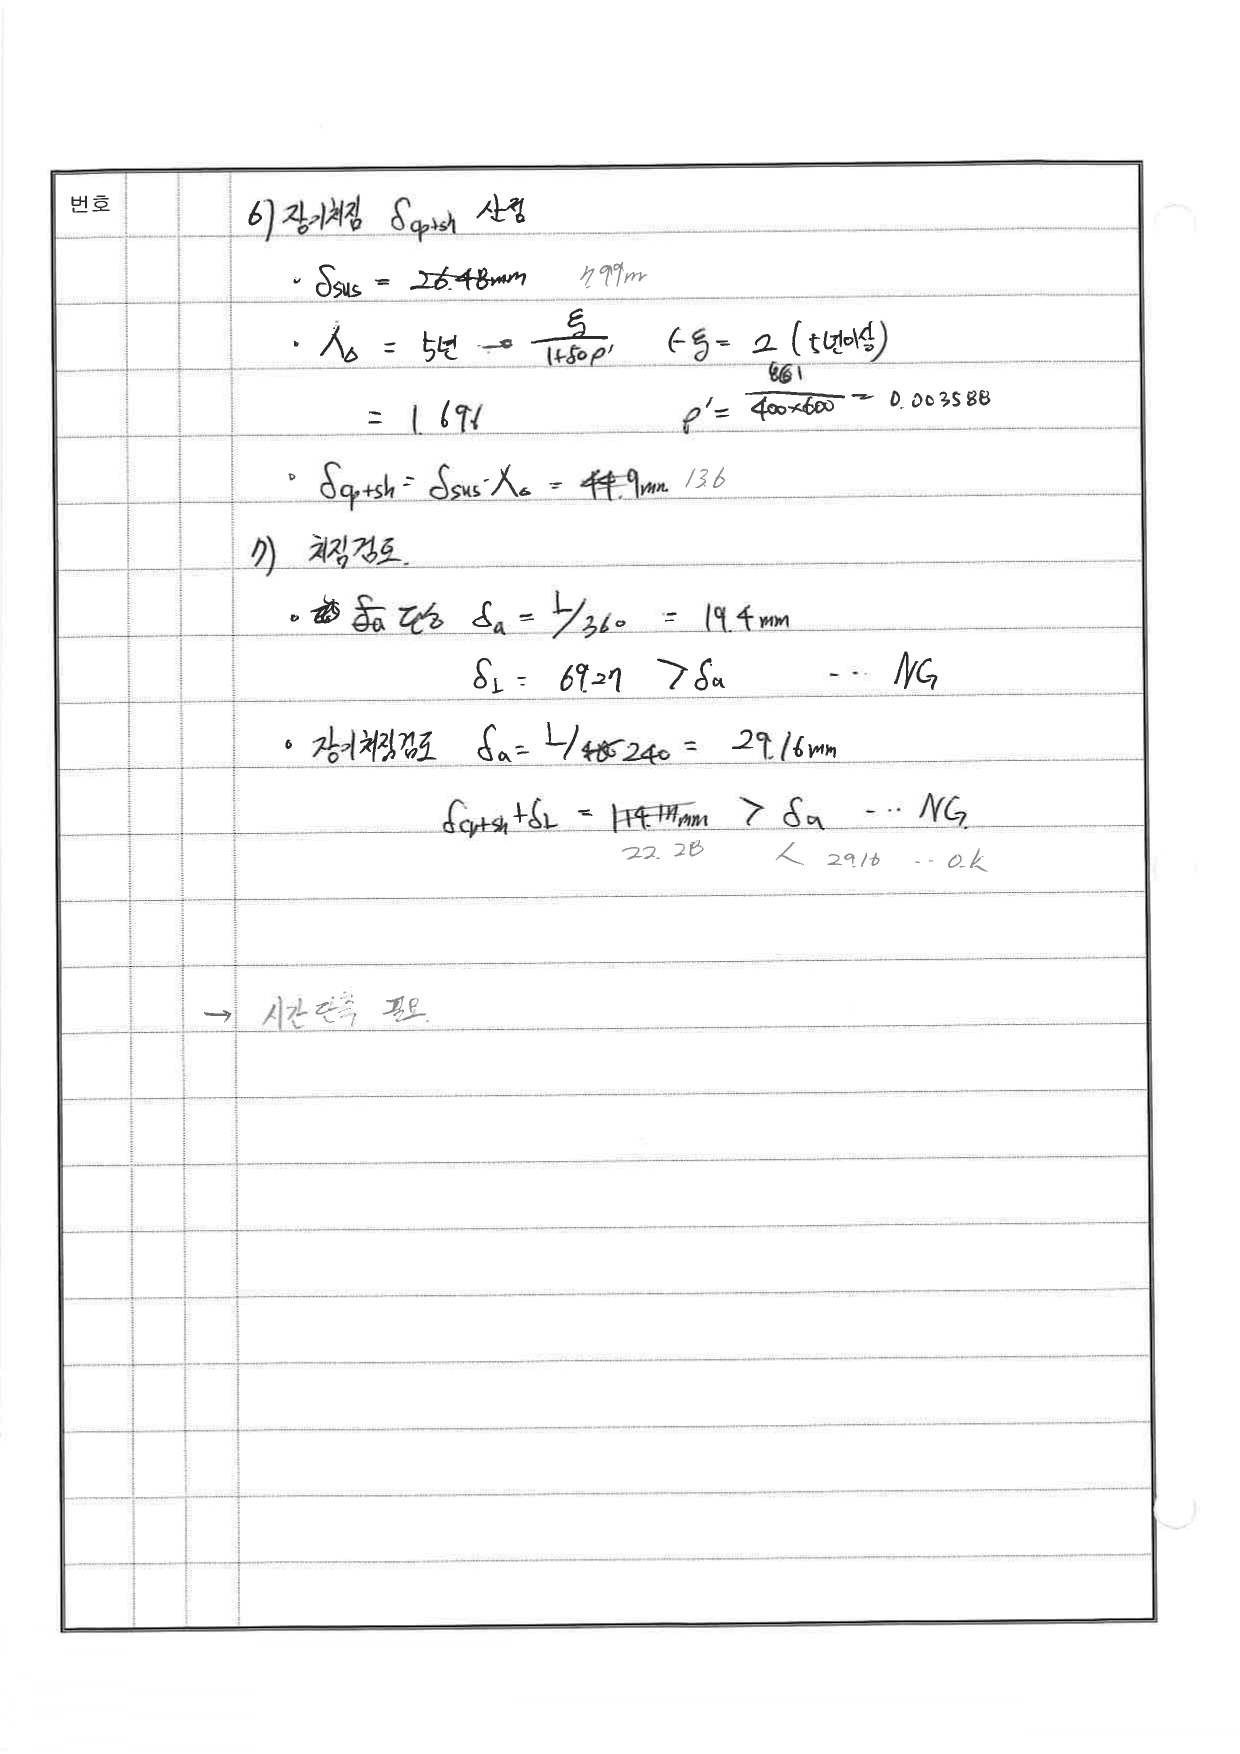 번호
6) 장기처짐 δcp+sh 산정
· δsus = 26.48mm 7.99m
· λΔ = 5년 → ξ/(1+50ρ') (-ξ = 2 (5년이상)
= 1.696 ρ' = 861/(400×600) = 0.003588
· δcp+sh = δsus·λΔ = 44.9mm 13.6
7) 처짐검토.
· δa δa = L/360 = 19.4mm
δL = 69.27 > δa ... NG
· 장기처짐검토 δa = L/240 = 29.16mm
δcp+sh + δL = > δa ... NG.
22.28 < 29.16 ... O.K
→ 시간단축 필요.